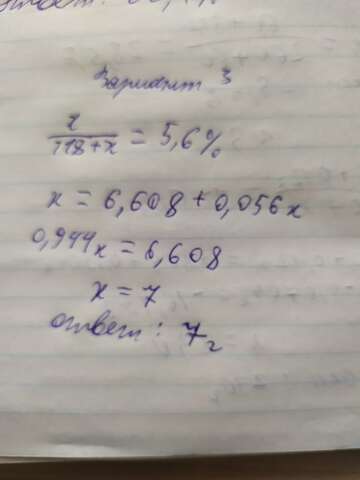 Вариант 3
x / 118+x = 5,6%
x = 6,608 + 0,056x
0,944x = 6,608
x = 7
ответ: 7г